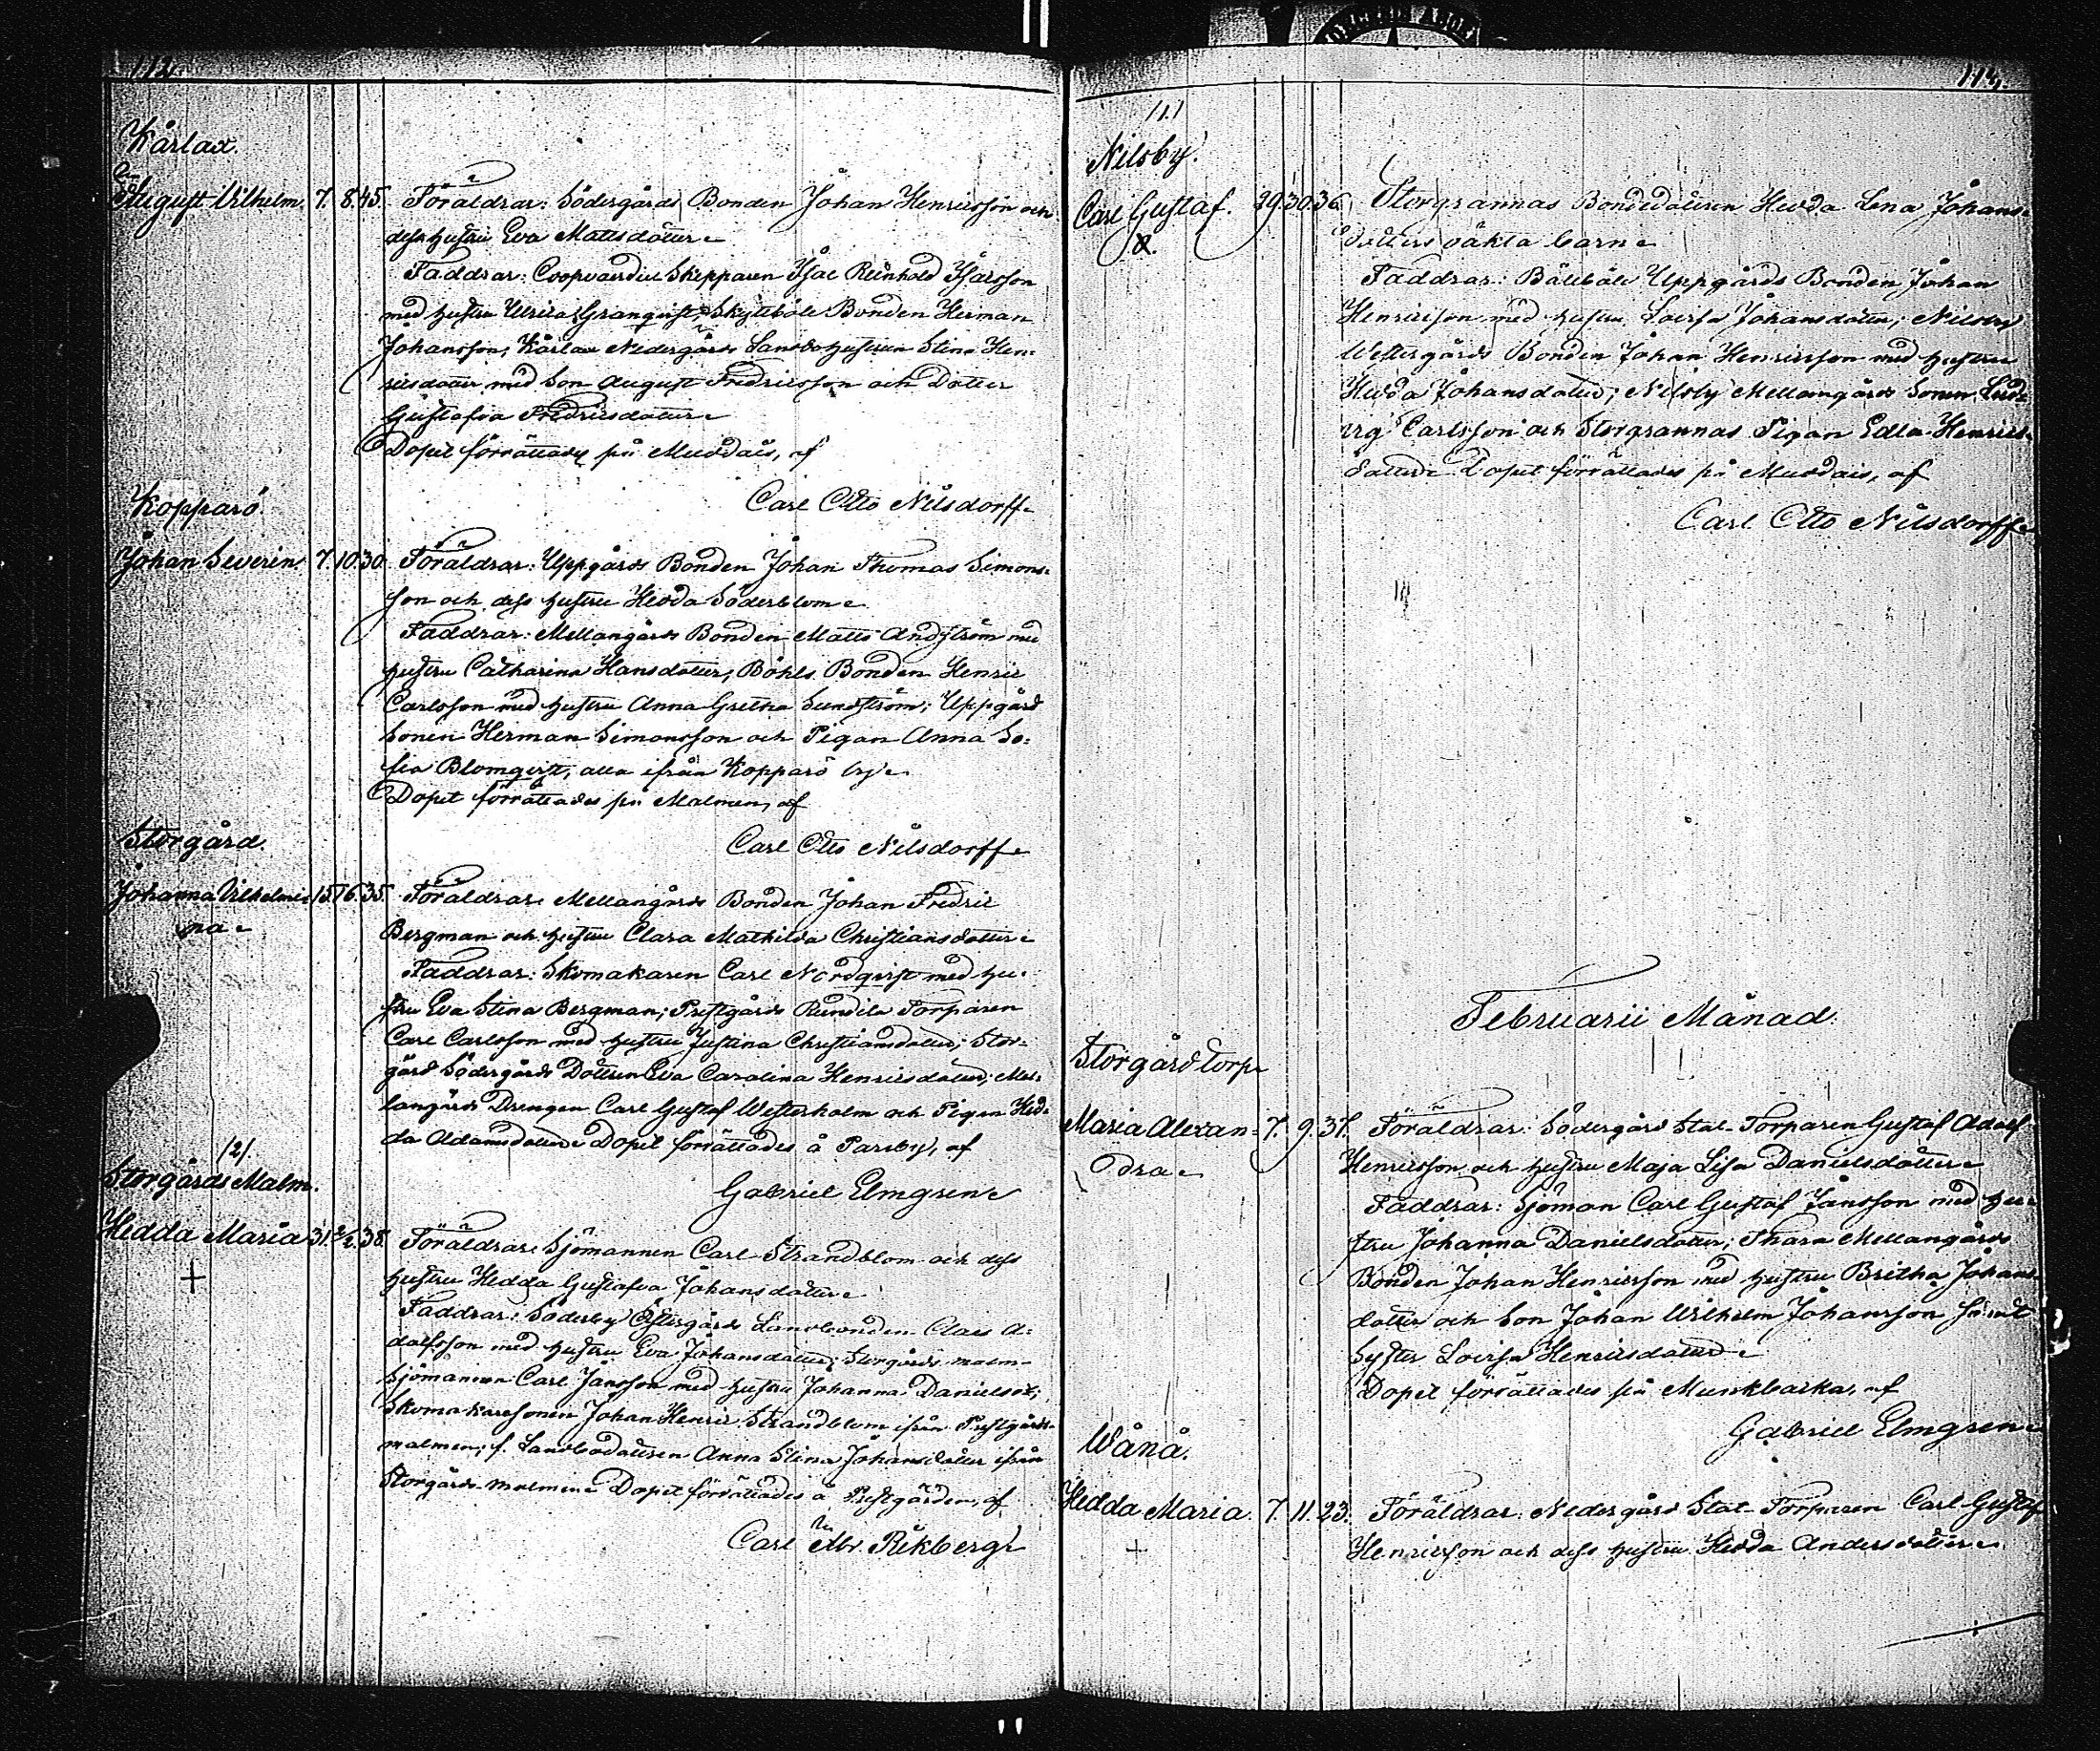 112.
Kårlax.
August Vilhelm. 7. 8. 45. Föräldrar: Södergårds Bonden Johan Henricsson och
dess hustru Eva Mattsdotter.
Faddrar: Coopvaerdie Skepparen Isac Reinhold Isacsson
med hustru Ulrica Granqvist, Skytteböle Bonden Herman
Johansson, Kårlax Nedergårds Landbohustrun Stina Hen=
ricsdotter med Son August Fredricsson och Dotter
Gustafva Fredricsdotter.
Dopet förrättades på Muddais, af
Carl Otto Nilsdorff.
Kopparö
Johan Severin. 7. 10. 30. Föräldrar: Uppgårds Bonden Johan Thomas Simons=
son och dess hustru Hedda Söderblom.
Faddrar: Mellangårds Bonden Matts Andström med
hustru Catharina Hansdotter, Böhls Bonden Henric
Carlsson med hustru Anna Gretha Sundström; Uppgård
Sonen Herman Simonsson och Pigan Anna So=
fia Blomqvist, alla ifrån Kopparö by.
Dopet förrättades på Malmen, af
Carl Otto Nilsdorff.
Storgård.
Johanna Vilhelmi= 15. 16. 35. Föräldrar: Mellangårds Bonden Johan Fredric
na. Bergman och hustru Clara Mathilda Christiansdotter.
Faddrar: Skomakaren Carl Nordqvist med hu=
stru Eva Stina Bergman; Prestgårds Torparen
Carl Carlsson med hustru Justina Christiansdotter; Stor=
gård Södergårds Dottren Eva Carolina Henricsdotter; Mel=
langårds Drengen Carl Gustaf Westerholm och Pigan Hed=
da Adamsdotter. Dopet förrättades å Parsby, af
Gabriel Elmgren.
/2/.
Storgårds Malm.
Hedda Maria 31. 2/2. 38. Föräldrar: Sjömannen Carl Strandblom och dess
+ hustru Hedda Gustafva Johansdotter.
Faddrar: Söderby Östergårds Landbonden Claes A=
dolfsson med hustru Eva Johansdotter; Storgårds malm=
Sjömannen Carl Jansson med hustru Johanna Danielsdt;
Skomakaresonen Johan Henric Strandblom ifrån Prestgårds=
malmen; f. Landbodottren Anna Stina Johansdotter ifrån
Storgårds malmen. Dopet förrättades å Prestgården, af
Carl Abr. Rikberg.
113.
/1./
Nilsby.
Carl Gustaf. 29. 30. 36. Storgrannas Bondedottren Hedda Lena Johans=
dotters oäkta barn.
Faddrar: Bålböle Uppgårds Bonden Johan
Henricsson med hustru Lovisa Johansdotter; Nilsby
Westergårds Bonden Johan Henricsson med hustru
Hedda Johansdotter; Nilsby Mellangårds Sonen Lud=
vig Carlsson och Storgrannas Pigan Edla Henrics=
dotter. Dopet förrättades på Muddais, af
Carl Otto Nilsdorff.
Februarii Månad.
Storgård torp.
Maria Alexan= 7. 9. 37. Föräldrar: Södergård Stat-Torparen Gustaf Adolf
dra. Henricsson och hustru Maja Lisa Danielsdotter.
Faddrar: Sjöman Carl Gustaf Jansson med hu=
stru Johanna Danielsdotter; Thara Mellangårds
Bonden Johan Henricsson med hustru Britha Johans=
dotter och Son Johan Wilhelm Johansson samt
Syster Lovisa Henricsdotter.
Dopet förrättades på Munkbacka, af
Gabriel Elmgren.
Wånå.
Hedda Maria. 7. 11. 23. Föräldrar: Nedergård Stat-Torparen Carl Gustaf
+ Henricsson och dess hustru Hedda Andersdotter.